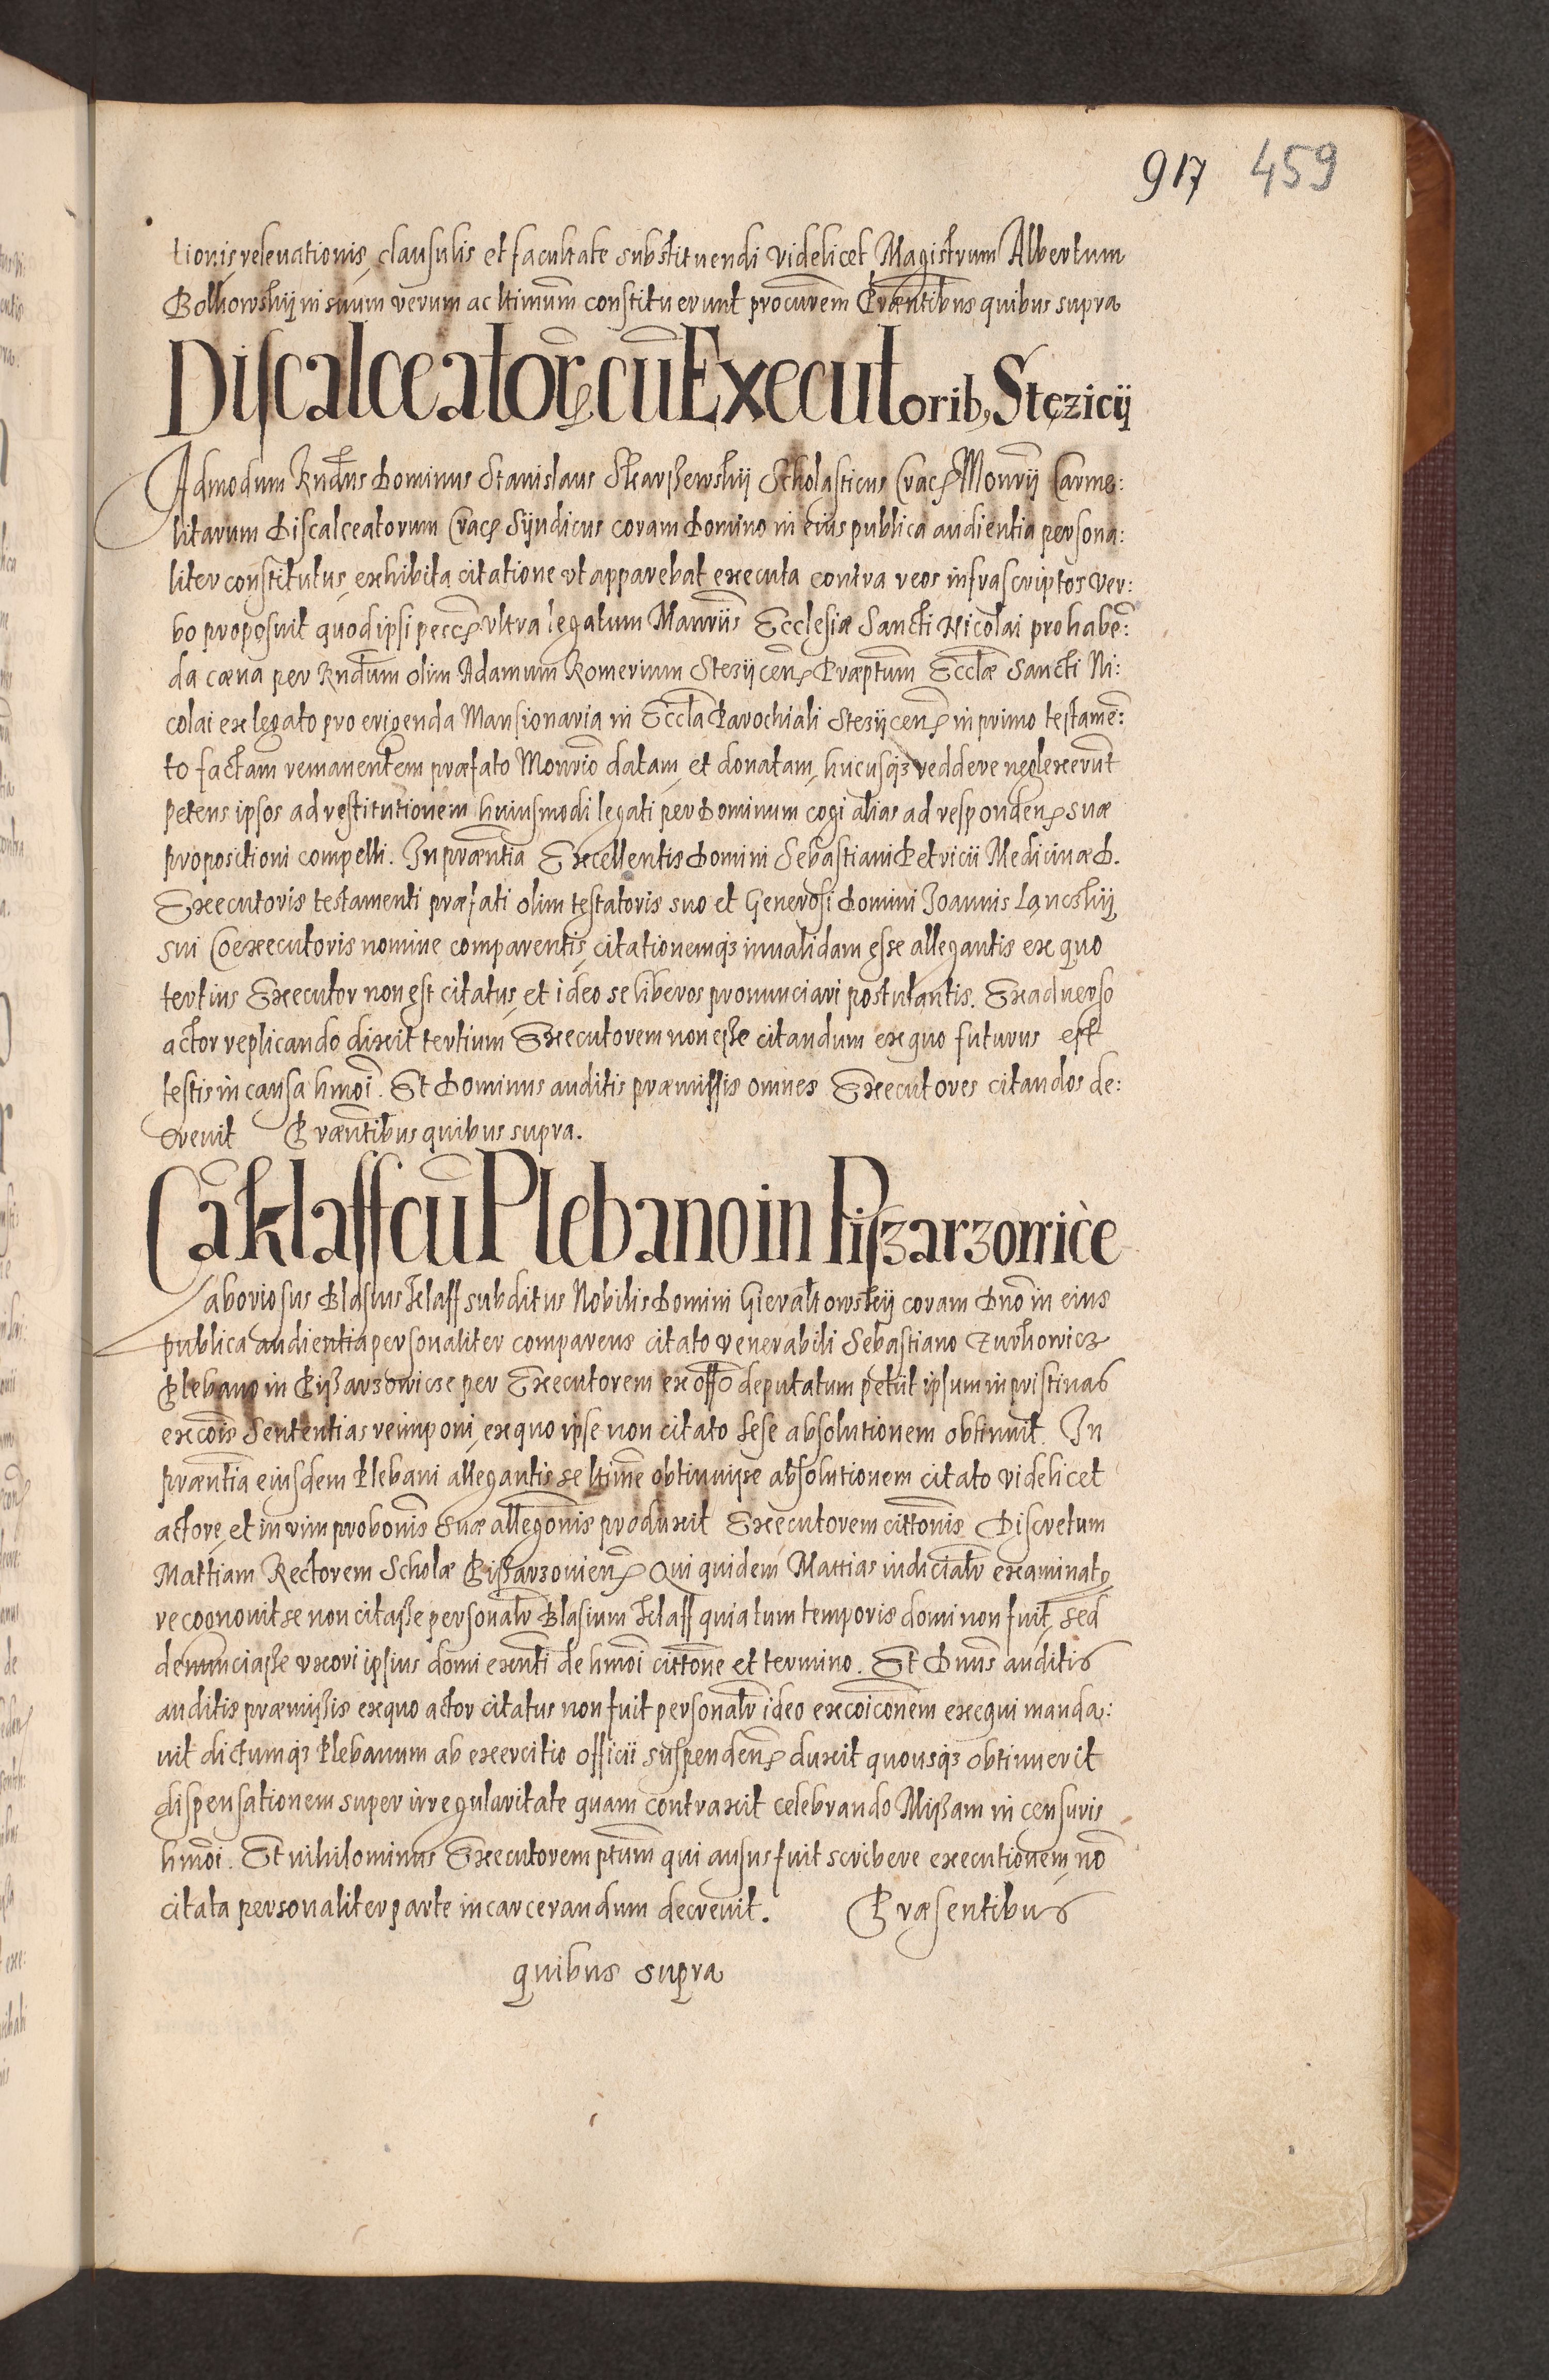 917 459
tionis, relevationis, clausulis et facultate substituendi videlicet Magistrum Albertum
in suum verum ac ltimum constituerunt procurem Præntibus quibus supra
Discalceatoꝝ cū Executorib, Stęzicÿ
Admodum Rndus Dominus Stanislaus Skarszewskÿ Scholasticus Crac. Monrÿ Carme:
litarum Discalceatorum Crac. Sÿndicus coram Domino in eius publica audientia persona:
liter constitutus, exhibita citatione ut apparebat executa contra reos infrascriptos ver:
bo proposuit quod ipsi ultra legatum Ecclesiæ Sancti Nicolai pro habē:
da cæna per Rndum olim Adamum Romerium Stezÿcen. Præptum Ecclæ Sancti Ni:
colai ex legato pro erigenda Mansionaria in Eccla Parochiali Stezÿcen. in primo testamē:
to factam remanentem præfato Monrio datam, et donatam, hucusqꝫ reddere neglexerunt
petens ipsos ad restitutionem huiusmodi legati per Dominum cogi alias ad responden. suæ
propositioni compelli. In præntia Excellentis Domini Sebastiani Petricii Medicinæ D.
Executoris testamenti præfati olim testatoris suo et Generosi Domini Joannis Lanckÿ
sui Coexecutoris nomine comparentis, citationemqꝫ invalidam esse allegantis ex quo
tertius Executor non est citatus, et ideo se liberos pronunciari postulantis. Ex adverso
actor replicando dixit tertium Executorem non esse citandum ex quo futurus est
testis in causa hmoi. Et Dominus auditis præmissis omnes Executores citandos de:
crevit Præntibus quibus supra.
Cā Klass cū Plebano in Piszarzowice
Laboriosus Blasius Klass subditus Nobilis Domini Gieraltowskÿ coram Dno in eius
publica audientia personaliter comparens citato venerabili Sebastiano Zurkowicz
Plebano in Piszarzowice per Executorem ex offo deputatum petiit ipsum in pristinas
excois Sententias reimponi, ex quo ipse non citato sese absolutionem obtinuit. In
præntia eiusdem Plebani allegantis se ltime obtinuisse absolutionem citato videlicet
actore, et in vim probonis suæ allegonis produxit Executorem cittonis Discretum
Mattiam Rectorem Scholæ Piszarzovien. Qui quidem Mattias iudicialr examinat.
recognovit se non citasse personalr Blasium Klass quia tum temporis domi non fuit, sed
denunciasse uxori ipsius domi exenti de hmoi cittone et termino. Et Dnus auditis
auditis præmissis ex quo actor citatus non fuit personalr ideo excoiconem exequi manda:
vit dictumqꝫ Plebanum ab exercitio officii suspenden. duxit quousqꝫ obtinuerit
dispensationem super irregularitate quam contraxit celebrando Missam in censuris
hmoi. Et nihilominus Executorem ptum qui ausus fuit scribere executionem, nō
citata personaliter parte incarcerandum decrevit. Præsentibus
quibus supra